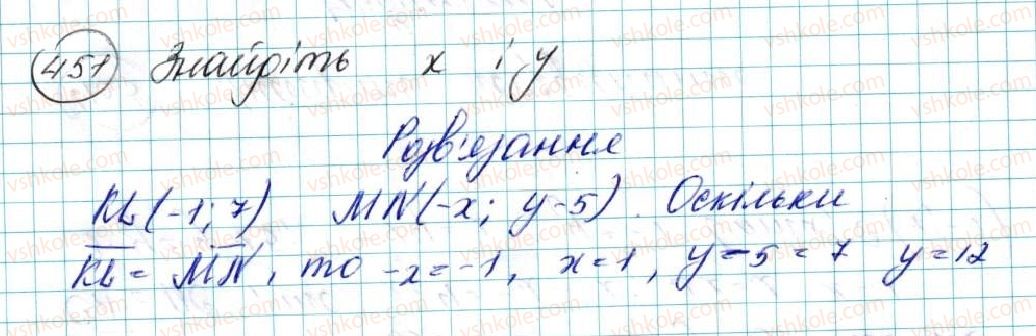 451 Знайдіть x і y
Розв'язання
KL(-1; 7) MN(-x; y-5). Оскільки
KL = MN, то -x=-1, x=1, y-5=7 y=12